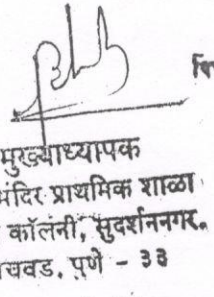 मुख्याध्यापक
मंदिर प्राथमिक शाळा
कॉलनी, सुदर्शननगर.
चवड, पुणे - ३३